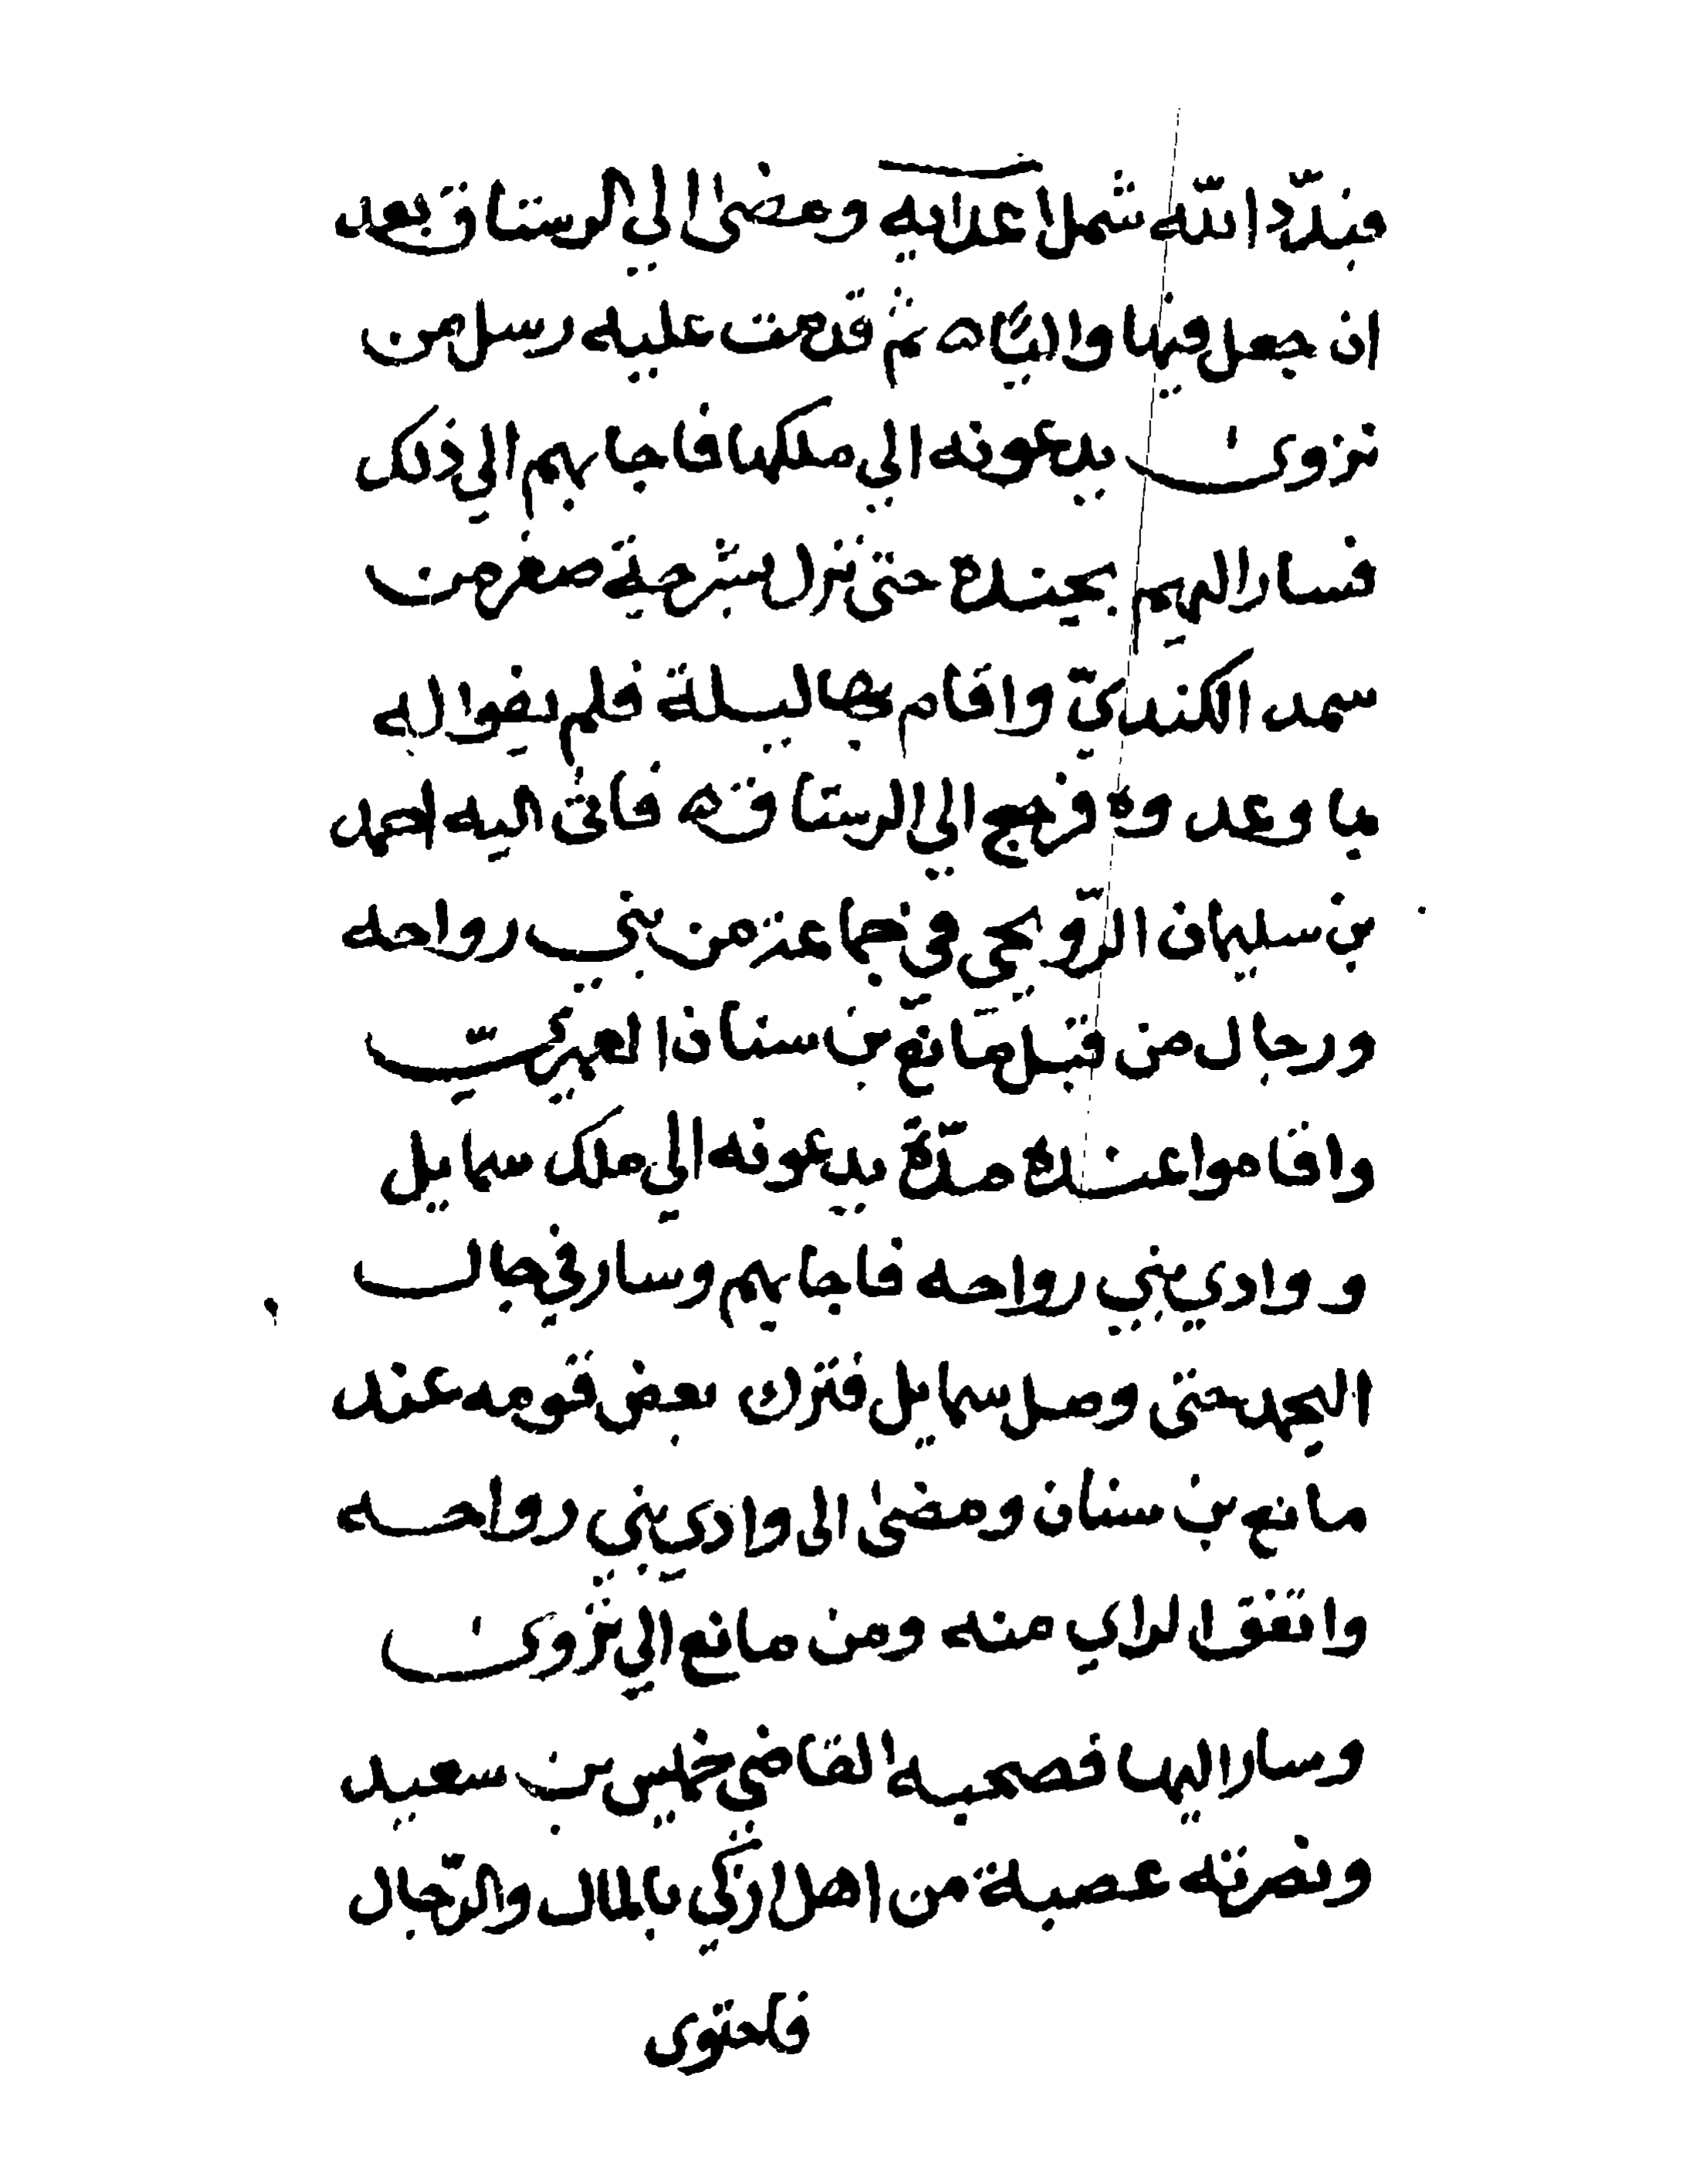 فبدّد الله شمل اعدايه ومضىٰ الي الرستاق بعد
ان جعل فيها واليًا ۵ ثم قدمت عليه رسل من
نزوىٰ يدعونه الي ملكها فاجابهم الي ذلك
فسار اليهم بجنده حتى نزل بشرجية صفر من
سمد الكنديّ واقام بها ليلة فلم يفوا له
بما وعدوه فرجع الي الرستاق ۵ فاتىٰ اليه احمد
بن سليمان الرّويحي في جماعة من بني رواحه
ورجال من قبل مانع بن سنان العميريّ
واقاموا عنده مدّة يدعونه الي ملك سمايل
و وادي بني رواحه فاجابهم وسار في جال
اليحمد حتى وصل سمايل فترك بعض قومه عند
مانع بن سنان ومضىٰ الى وادي بني رواحه
واتفق الراي منه ومن مانع الي نزوىٰ
وسار اليها فصحبه القاضي خميس بن سعيد
ونصرته عصبة من اهل ازكي بالمال والرّجال
فاحتوى